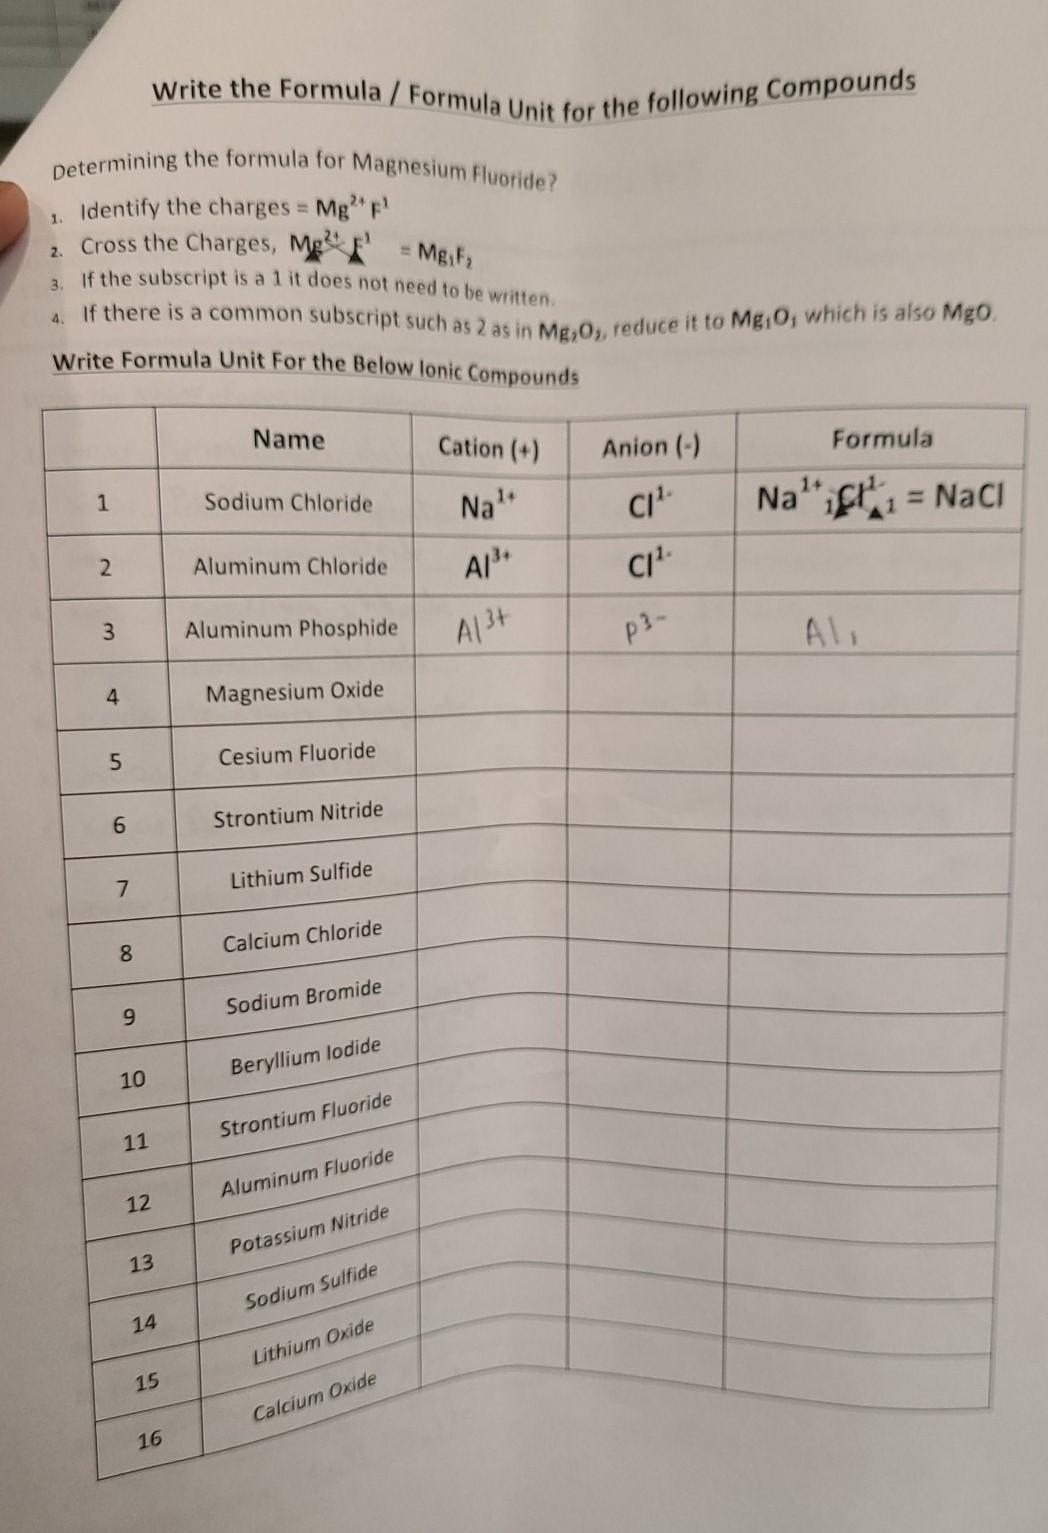 Write the Formula / Formula Unit for the following Compounds
Determining the formula for Magnesium Fluoride?
1. Identify the charges = Mg²⁺ F¹
2. Cross the Charges, Mg²⁺ F¹ = Mg₁F₂
3. If the subscript is a 1 it does not need to be written.
4. If there is a common subscript such as 2 as in Mg₂O₂, reduce it to Mg₁O₁ which is also MgO.
Write Formula Unit For the Below Ionic Compounds
Name Cation (+) Anion (-) Formula
1 Sodium Chloride Na¹⁺ Cl¹⁻ Na¹⁺₁Cl¹⁻₁ = NaCl
2 Aluminum Chloride Al³⁺ Cl¹⁻
3 Aluminum Phosphide Al³⁺ P³⁻ Al₁
4 Magnesium Oxide
5 Cesium Fluoride
6 Strontium Nitride
7 Lithium Sulfide
8 Calcium Chloride
9 Sodium Bromide
10 Beryllium Iodide
11 Strontium Fluoride
12 Aluminum Fluoride
13 Potassium Nitride
14 Sodium Sulfide
15 Lithium Oxide
16 Calcium Oxide